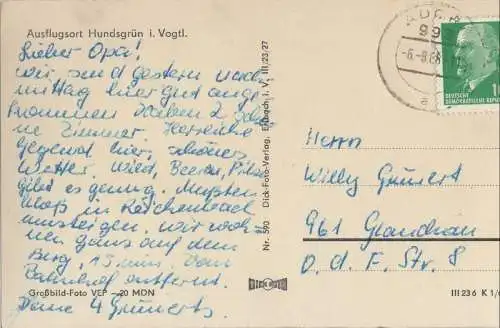 Ausflugsort Hundsgrün i. Vogtl.
Lieber Opa!
Wir sind gestern nach-
mittag hier gut ange-
kommen. Haben 2 schö-
ne Zimmer. Herrliche
Gegend hier, schönes
Wetter. Wild, Beeren, Pilze
gibt es genug. Mußten
bloß in Reichenbach
umsteigen. Wir woh-
nen ganz auf dem
Berg, 15 min. vom
Bahnhof entfernt.
Großbild-Foto VEP —20 MDN
Deine 4 Grünerts
Nr. 590 Dick-Foto-Verlag, Erlbach i. V. III/23/27
DICK
ADORF
99
DEUTSCHE
DEMOKRATISCHE REPUBLIK
10
Herrn
Willy Grünert
961 Glauchau
O. d. F. Str. 8
III 23 6 K 1/6